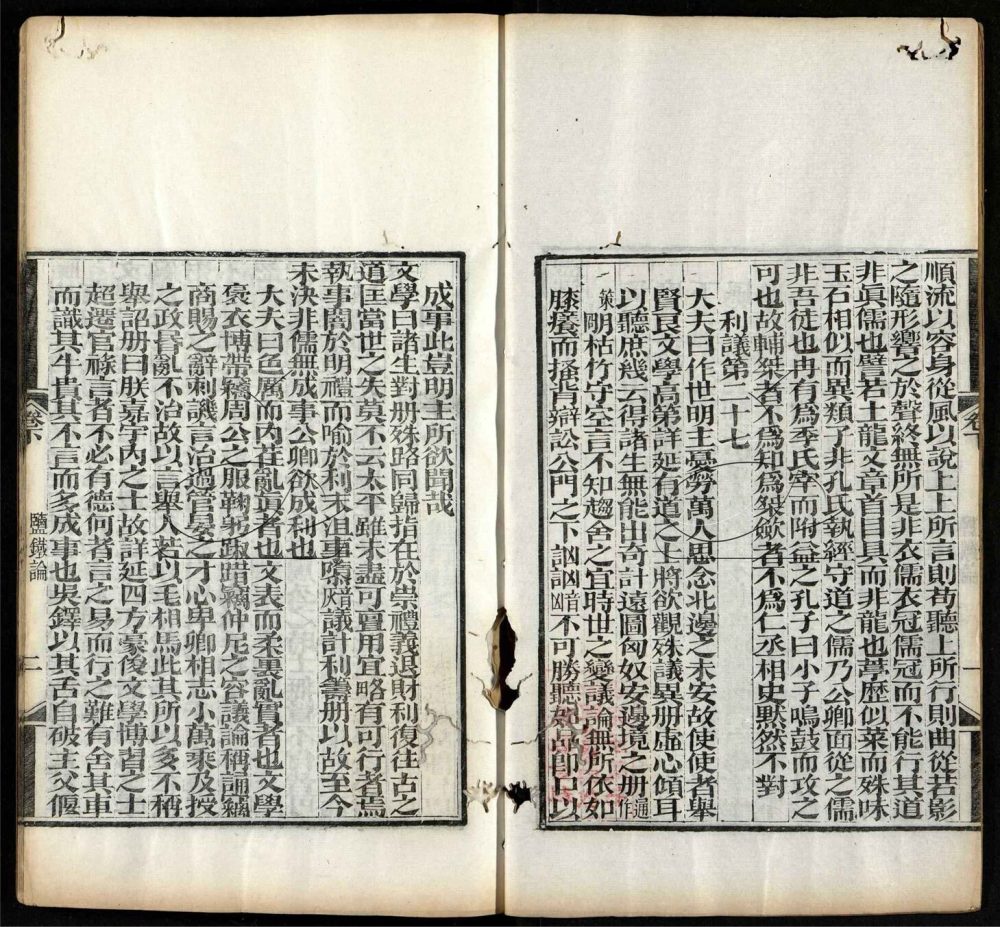 順流以容身從風以說上上所言則苟聽上所行則曲從若影
之隨形響之於聲終無所是非衣儒衣冠儒冠而不能行其道
非眞儒也譬若土龍文章首目具而非龍也葶歷似菜而殊味
玉石相似而異類子非孔氏執經守道之儒乃公卿面從之儒
非吾徒也冉有爲季氏宰而附益之孔子曰小子鳴鼓而攻之
可也故輔桀者不爲知爲桀斂者不爲仁丞相史默然不對
利議第二十七
大夫曰作世明主憂勞萬人思念北邊之未安故使使者舉
賢良文學高第詳延有道之士將欲觀殊議異册虛心傾耳
以聽庶幾云得諸生無能出奇計遠圖匈奴安邊境之册通作
策 明枯竹守空言不知趨舍之宜時世之變議論無所依如
膝癢而搔背辯訟公門之下訩訩音凶不可勝聽如品卽口以
成事此豈明主所欲聞哉
文學曰諸生對册殊路同歸指在於崇禮義退財利復往古之
道匡當世之失莫不云太平雖未盡可亶用宜略有可行者焉
執事闇於明禮而喻於利末沮事隳議計利籌册以故至今
未決非儒無成事公卿欲成利也
大夫曰色厲而內荏亂眞者也文表而柔裏亂實者也文學
裒衣博帶竊周公之服鞠躬踧踖竊仲尼之容議論稱誦竊
商賜之辭刺譏言治過管晏之才心卑卿相志小萬乘及授
之政昏亂不治故以言舉人若以毛相馬此其所以多不稱
舉詔册曰朕嘉宇內之士故詳延四方豪俊文學博習之士
超遷官祿言者不必有德何者言之易而行之難有舍其車
而識其牛貴其不言而多成事也吳鐸以其舌自破主父偃
卷下
鹽鐵論
二